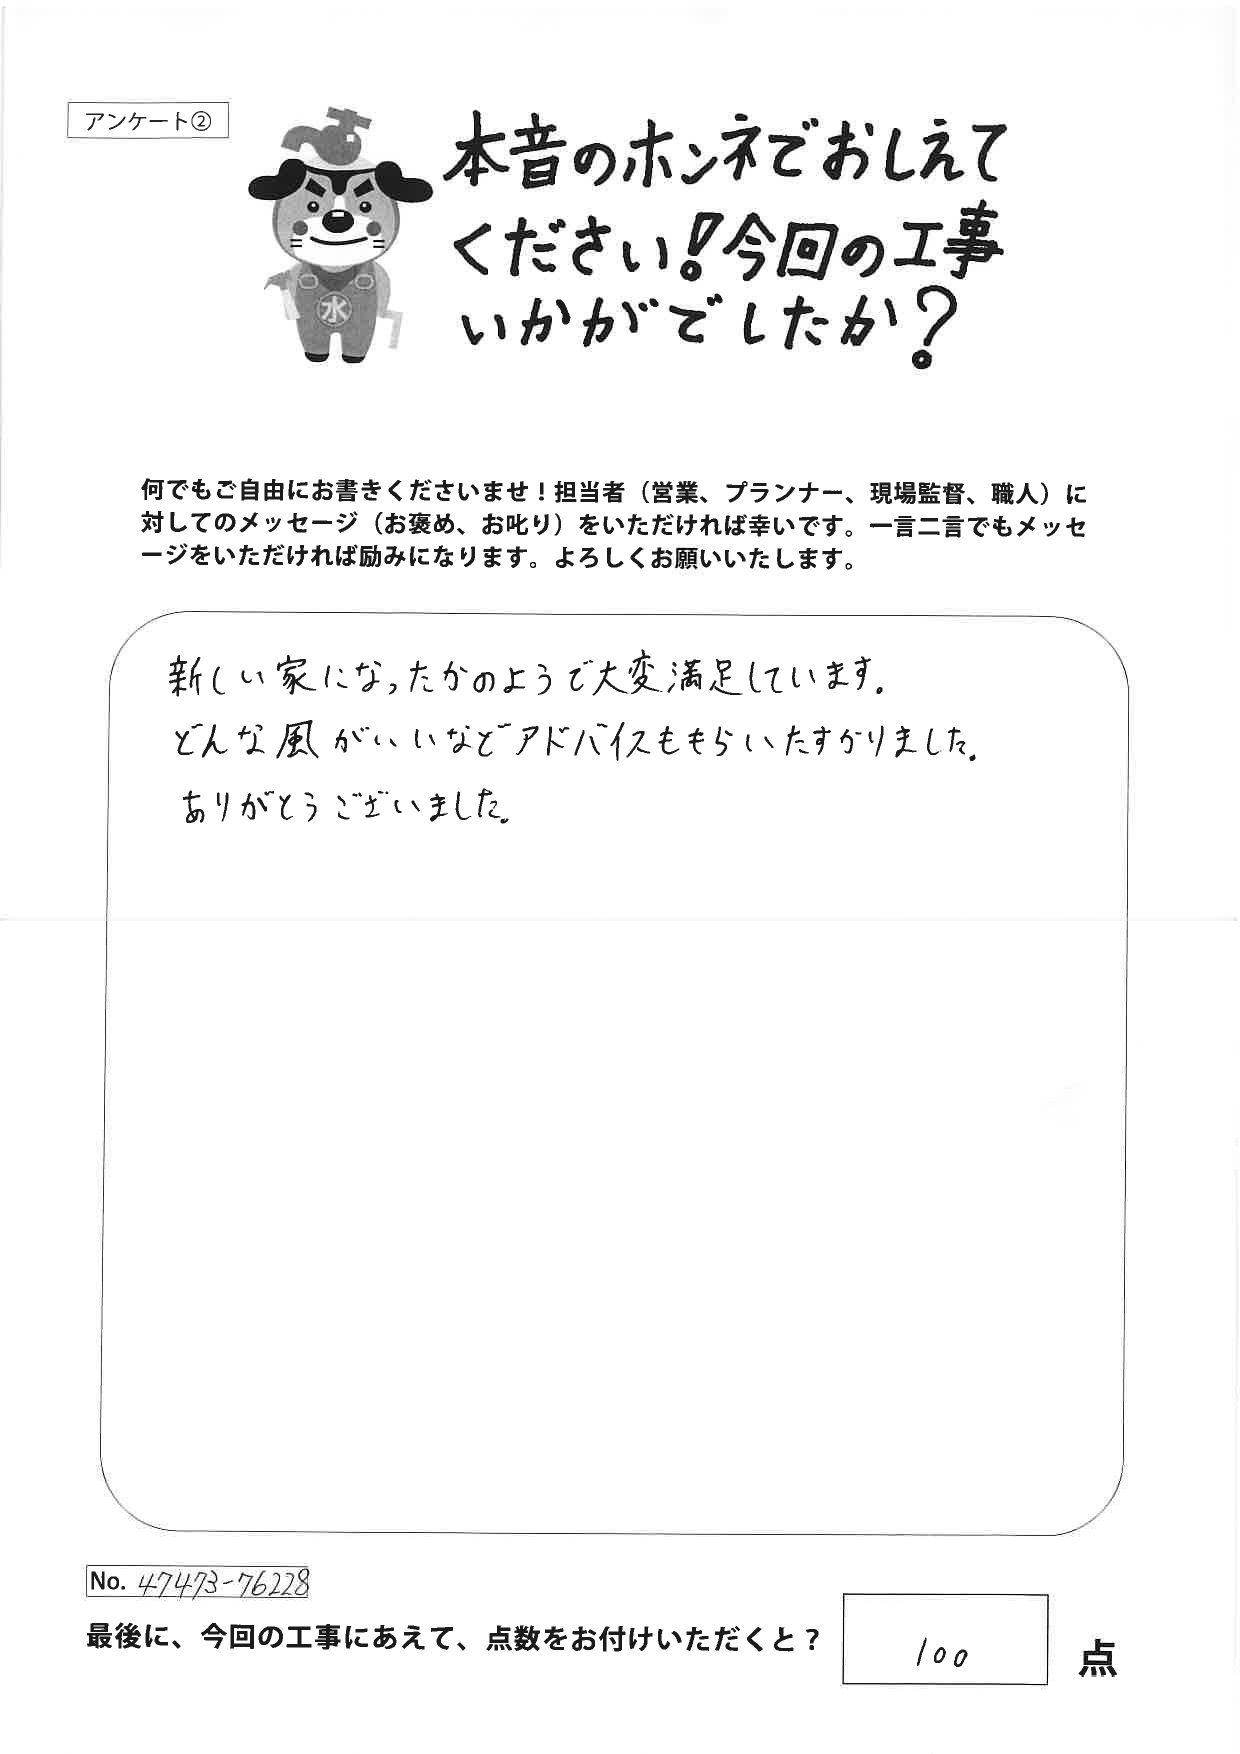 アンケート②
本音のホンネでおしえて
ください!今回の工事
いかがでしたか?
水
何でもご自由にお書きくださいませ!担当者(営業、プランナー、現場監督、職人)に
対してのメッセージ(お褒め、お叱り)をいただければ幸いです。一言二言でもメッセ
ージをいただければ励みになります。よろしくお願いいたします。
新しい家になったかのようで大変満足しています。
どんな風がいいなどアドバイスももらいたすかりました。
ありがとうございました。
No. 47473-76228
最後に、今回の工事にあえて、点数をお付けいただくと?
100 点